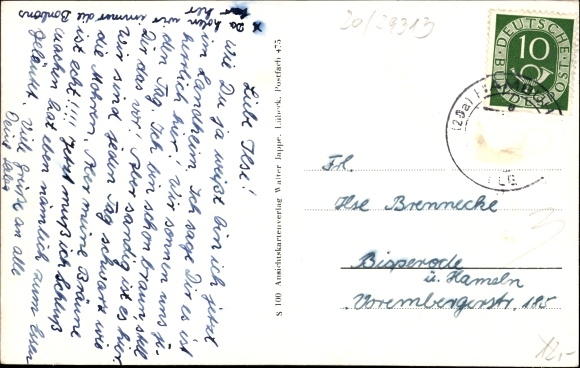 Liebe Ilse!
Wie Du ja weißt bin ich jetzt
im Landheim. Ich sage Dir es ist
herrlich hier! Wir sonnen uns je-
den Tag. Ich bin schon braun, stell
Dir das vor! Aber sandig ist es hier.
Wir sind jeden Tag schwarz wie
die Mohren. Aber meine Bräune
ist echt!!!! Jetzt muß ich Schluß
machen hat eben nämlich zum Essen
geläutet. Viele Grüße an alle
Deine
x Da holen wir immer die Bonbons
her
S 100 Ansichtskartenverlag Walter Jappe, Lübeck, Postfach 475
20/29313
DEUTSCHE
BUNDESPOST
10
(20a)
Frl.
Ilse Brennecke
Bisperode
ü. Hameln
Vorembergerstr. 185
3
12,-